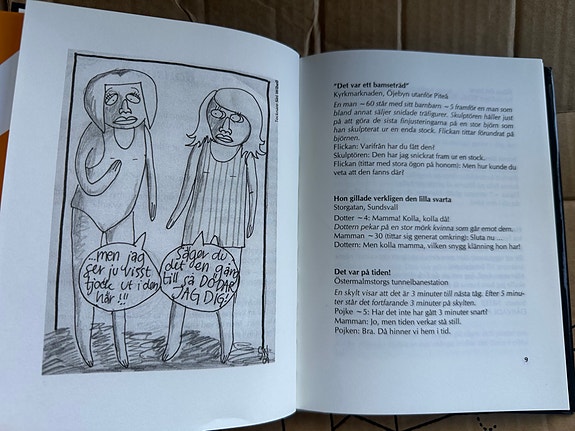 ...men jag
ser ju visst
tjock ut i den
här!!!
säger du
det en gång
till så DÖDAR
JAG DIG!
"Det var ett bamseträd"
Kyrkmarknaden, Öjebyn utanför Piteå
En man ~60 står med sitt barnbarn ~5 framför en man som
bland annat säljer snidade träfigurer. Skulptören håller just
på att göra de sista finjusteringarna på en stor björn som
han skulpterat ur en enda stock. Flickan tittar förundrat på
björnen.
Flickan: Varifrån har du fått den?
Skulptören: Den har jag snickrat fram ur en stock.
Flickan (tittar med stora ögon på honom): Men hur kunde du
veta att den fanns där?
Hon gillade verkligen den lilla svarta
Storgatan, Sundsvall
Dotter ~4: Mamma! Kolla, kolla då!
Dottern pekar på en stor mörk kvinna som går emot dem.
Mamman ~30 (tittar sig generat omkring): Sluta nu ...
Dottern: Men kolla mamma, vilken snygg klänning hon har!
Det var på tiden!
Östermalmstorgs tunnelbanestation
En skylt visar att det är 3 minuter till nästa tåg. Efter 5 minu-
ter står det fortfarande 3 minuter på skylten.
Pojke ~5: Har det inte har gått 3 minuter snart?
Mamman: Jo, men tiden verkar stå still.
Pojken: Bra. Då hinner vi hem i tid.
9